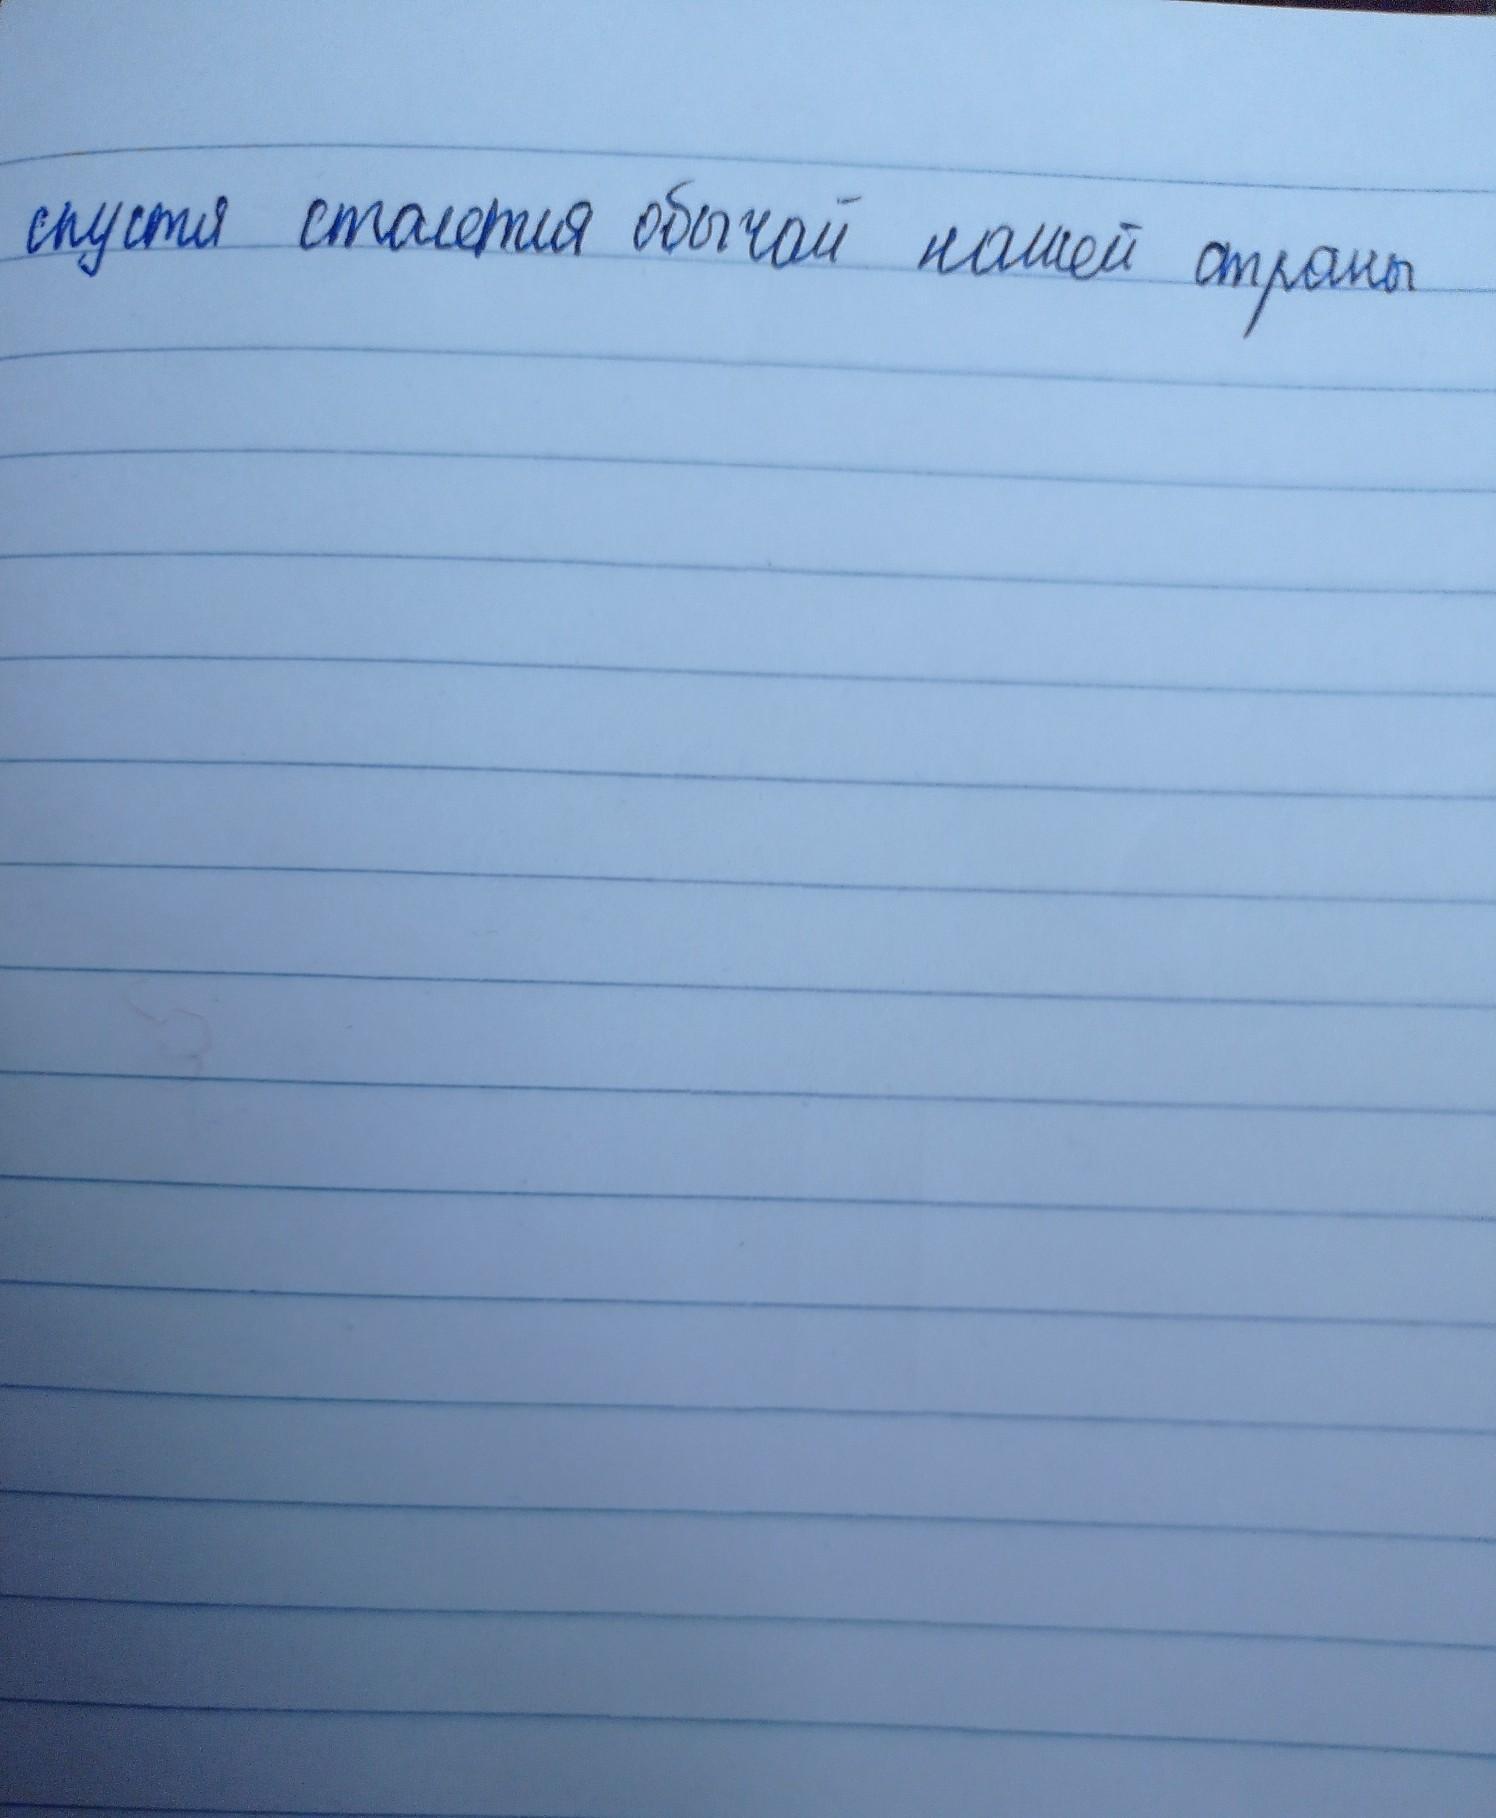 спустя столетия обычай нашей страны